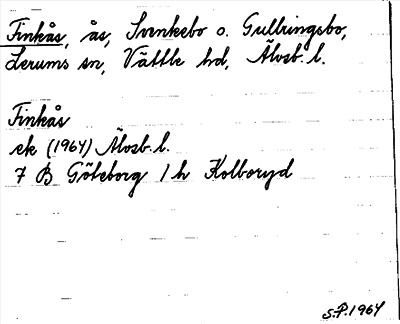 Finkås, ås, Svenkebo o. Gullringsbo,
Lerums sn, Vättle hd, Älvsb. l.
Finkås
ek (1964) Älvsb. l.
7 B Göteborg 1 h Kolboryd
S.P. 1964